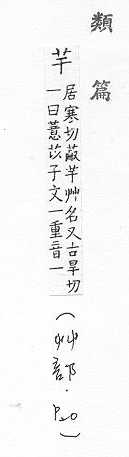 類篇
芉
居寒切蔽芉艸名又古旱切
一曰薏苡子文一重音一
(艸部.P20)